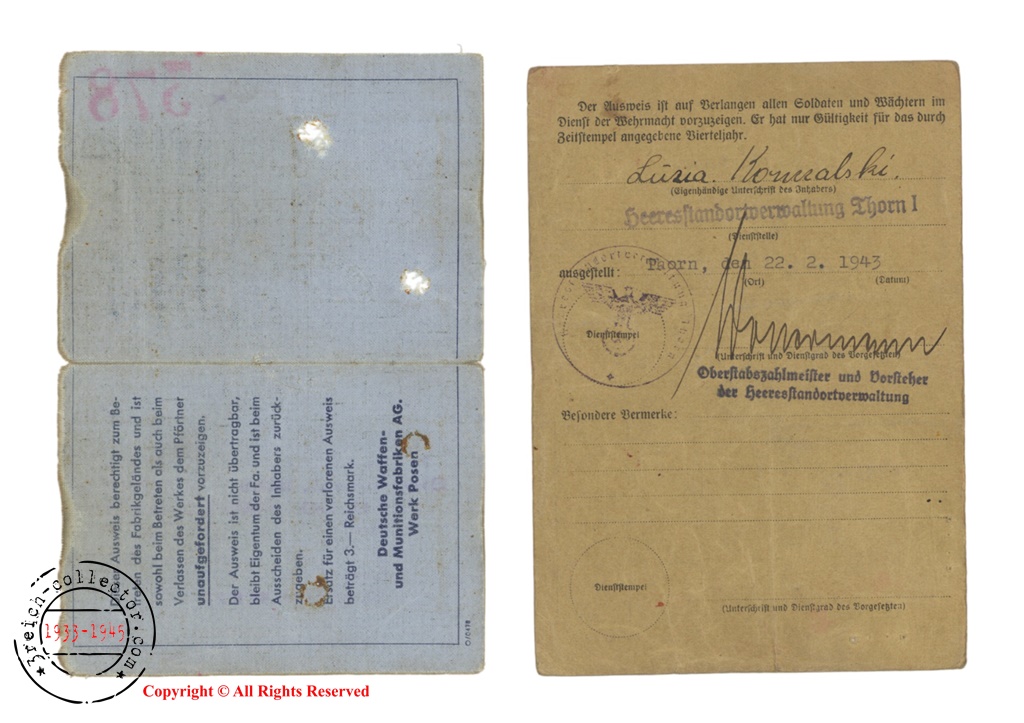 578
Dieser Ausweis berechtigt zum Be-
treten des Fabrikgeländes und ist
sowohl beim Betreten als auch beim
Verlassen des Werkes dem Pförtner
unaufgefordert vorzuzeigen.
Der Ausweis ist nicht übertragbar,
bleibt Eigentum der Fa. und ist beim
Ausscheiden des Inhabers zurück-
zugeben.
Ersatz für einen verlorenen Ausweis
beträgt 3.— Reichsmark.
Deutsche Waffen-
und Munitionsfabriken AG.
Werk Posen
O/0478
3reich-collector.com
1933-1945
Copyright © All Rights Reserved
Der Ausweis ist auf Verlangen allen Soldaten und Wächtern im
Dienst der Wehrmacht vorzuzeigen. Er hat nur Gültigkeit für das durch
Zeitstempel angegebene Vierteljahr.
Luzia Kowalski.
(Eigenhändige Unterschrift des Inhabers)
Heeresstandortverwaltung Thorn I
(Dienststelle)
ausgestellt: Thorn, den 22. 2. 1943
(Ort) (Datum)
Heeresstandortverwaltung Thorn
Dienststempel
(Unterschrift und Dienstgrad des Vorgesetzten)
Oberstabszahlmeister und Vorsteher
der Heeresstandortverwaltung
Besondere Vermerke:
Dienststempel
(Unterschrift und Dienstgrad des Vorgesetzten)